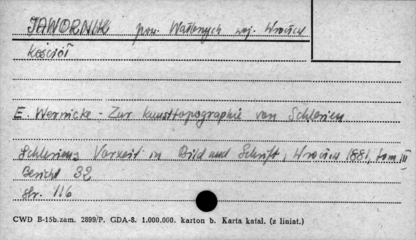 JAWORNIK pow. Wałbrzych woj. Wrocław
kościół
E. Wernicke - Zur Kunsttopographie von Schlesien
Schlesiens Vorzeit in Bild und Schrift, Wrocław 1881, tom III
Bericht 32
str. 116
CWD B-15b.zam. 2899/P. GDA-8. 1.000.000. karton b. Karta katal. (z liniat.)